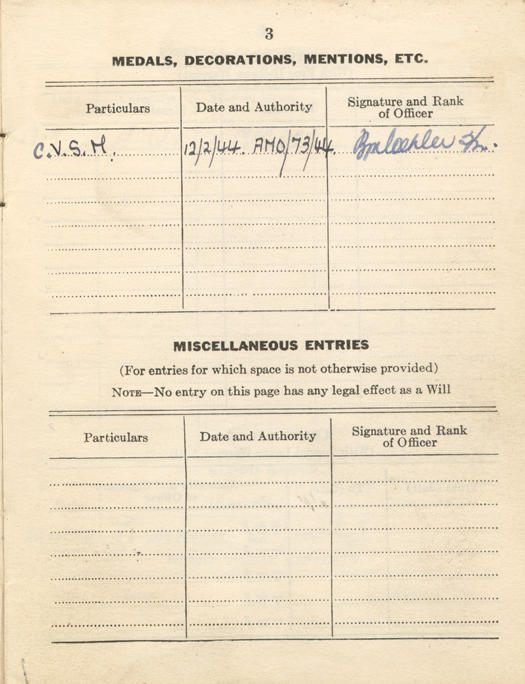 3
MEDALS, DECORATIONS, MENTIONS, ETC.
Particulars
Date and Authority
Signature and Rank
of Officer
C.V.S.M.
12/2/44. AMO/73/44.
MISCELLANEOUS ENTRIES
(For entries for which space is not otherwise provided)
NOTE—No entry on this page has any legal effect as a Will
Particulars
Date and Authority
Signature and Rank
of Officer